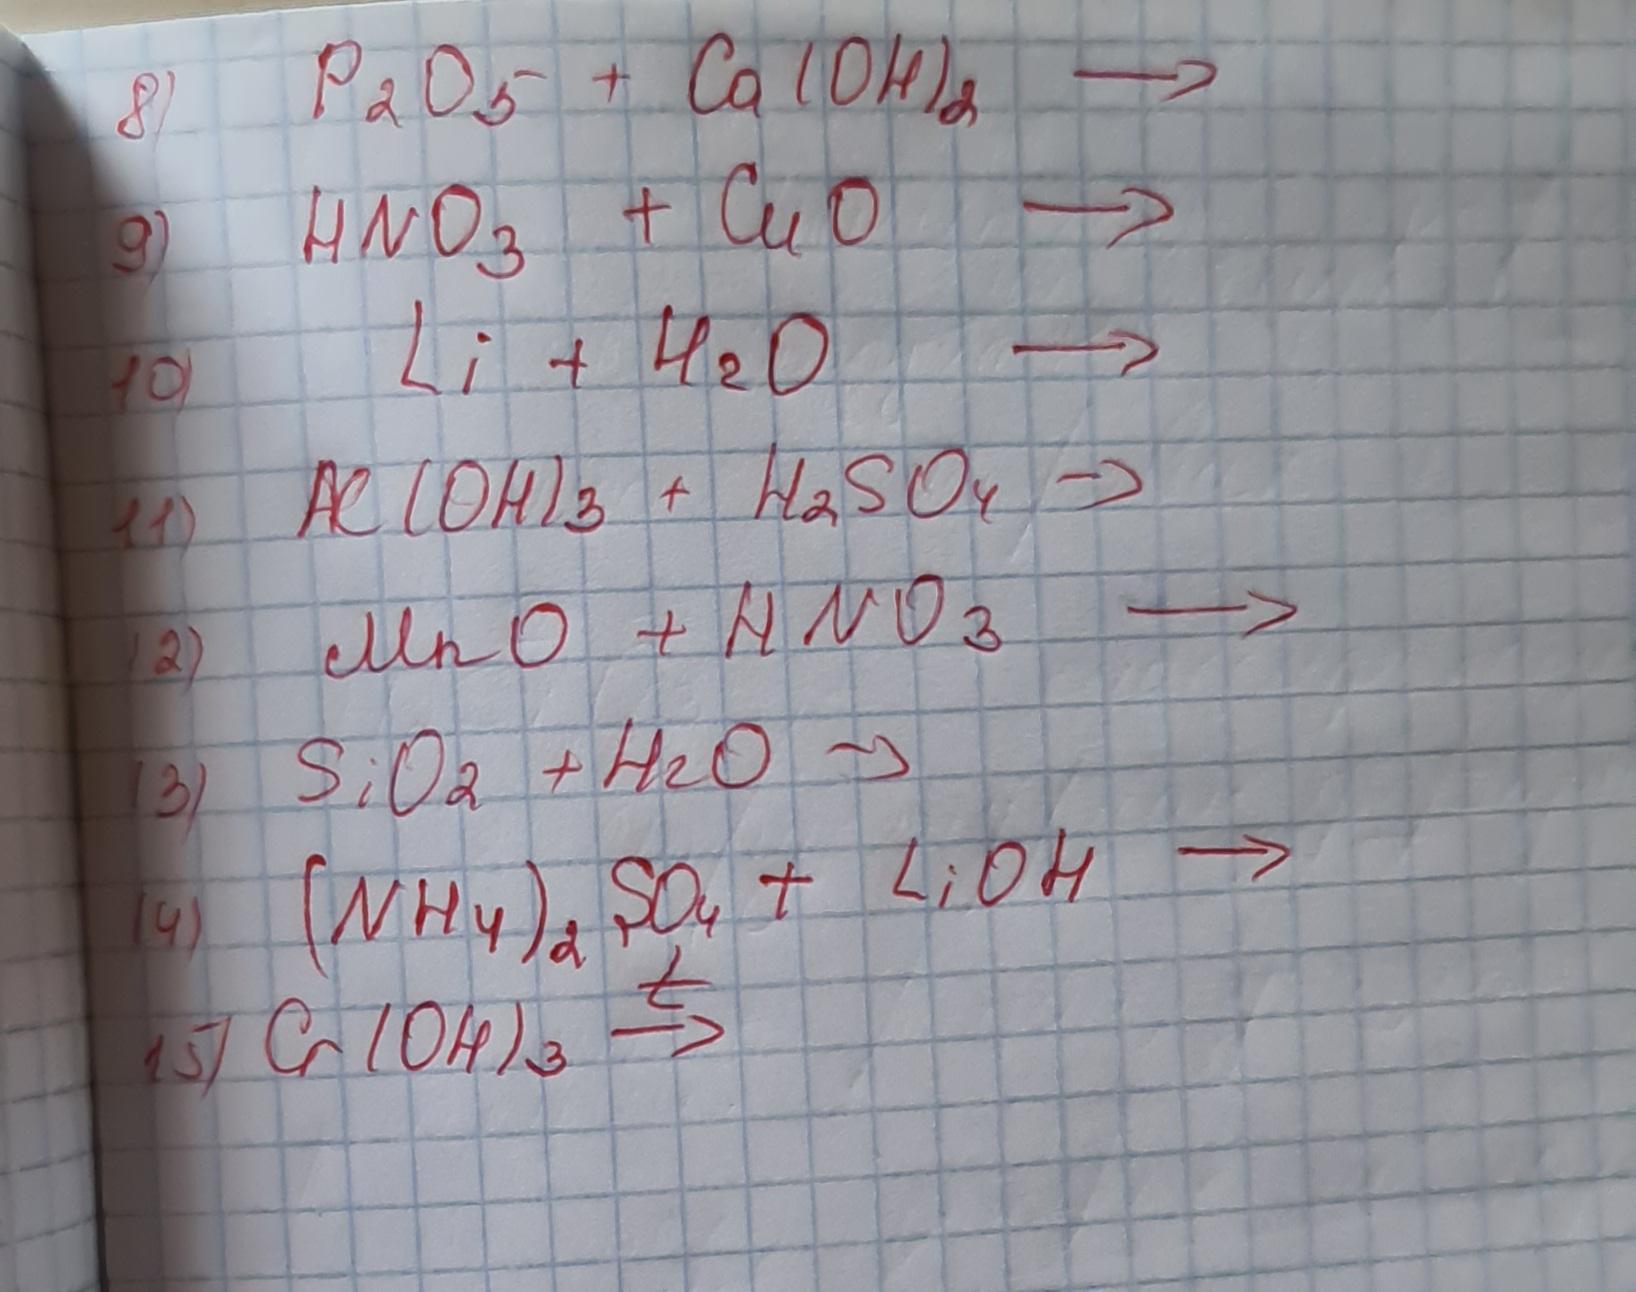 8) P₂O₅ + Ca(OH)₂ →
9) HNO₃ + CuO →
10) Li + H₂O →
11) Al(OH)₃ + H₂SO₄ →
12) MnO + HNO₃ →
13) SiO₂ + H₂O →
14) (NH₄)₂SO₄ + LiOH →
t
15) Cr(OH)₃ →